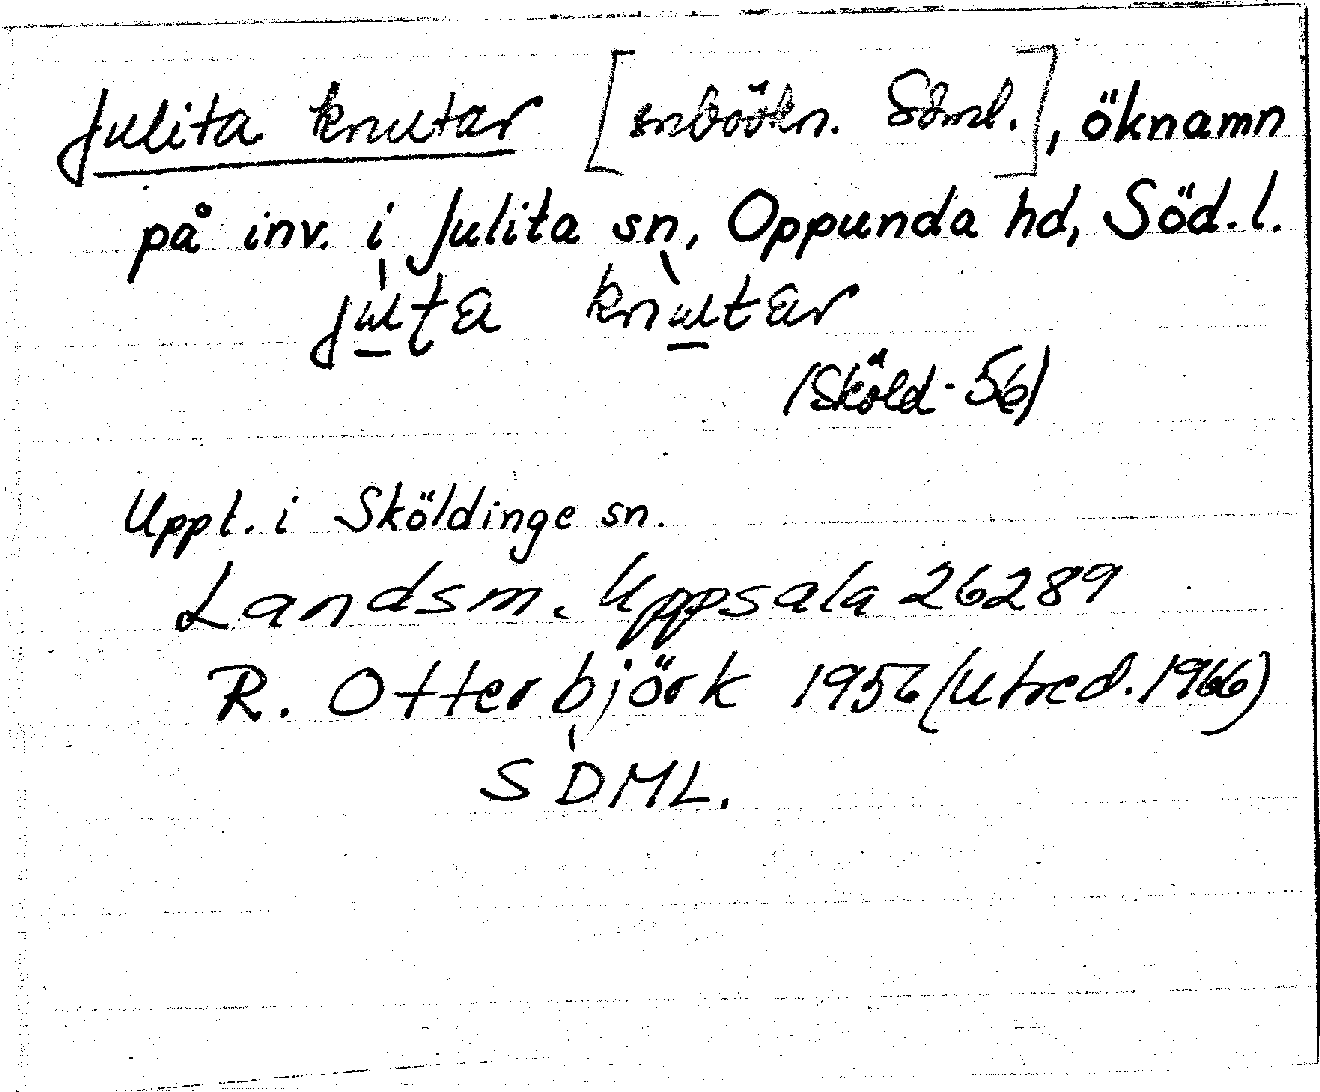 Julita knutar [snboökn. Söml.], öknamn
på inv. i Julita sn, Oppunda hd, Söd.l.
julta knutar
(Sköld - 56)
Uppt. i Sköldinge sn.
Landsm. Uppsala 26289
R. Otterbjörk 1956 (utred. 1966)
SDML.